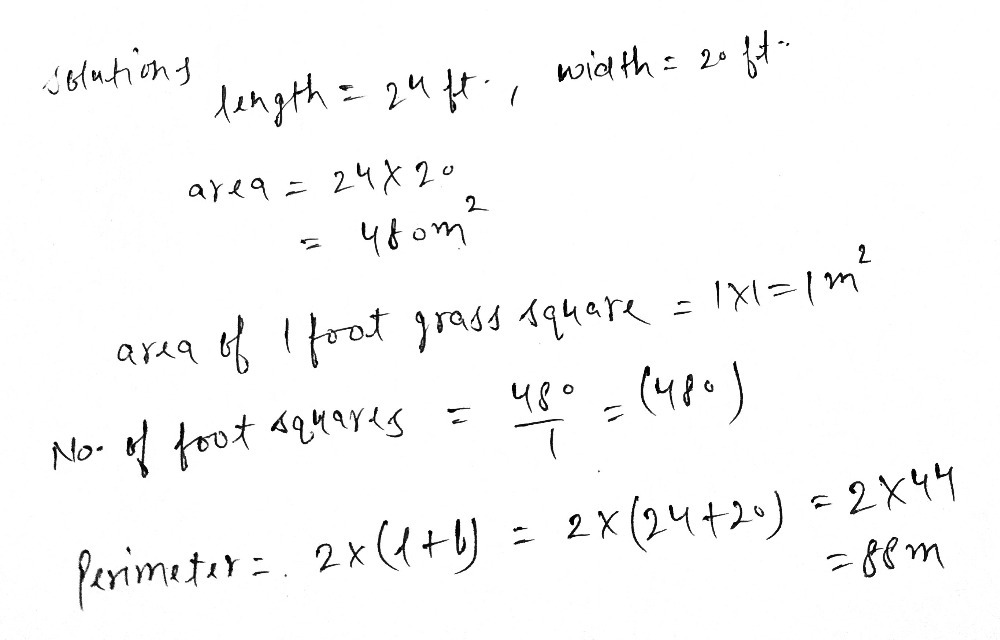 solutions
length = 24 ft. , width = 20 ft..
area = 24 X 20
= 480m²
area of 1 foot grass square = 1X1 = 1 m²
No. of foot squares = 480/1 = (480)
Perimeter = . 2 x (l+b) = 2 x (24+20) = 2 X 44
= 88 m